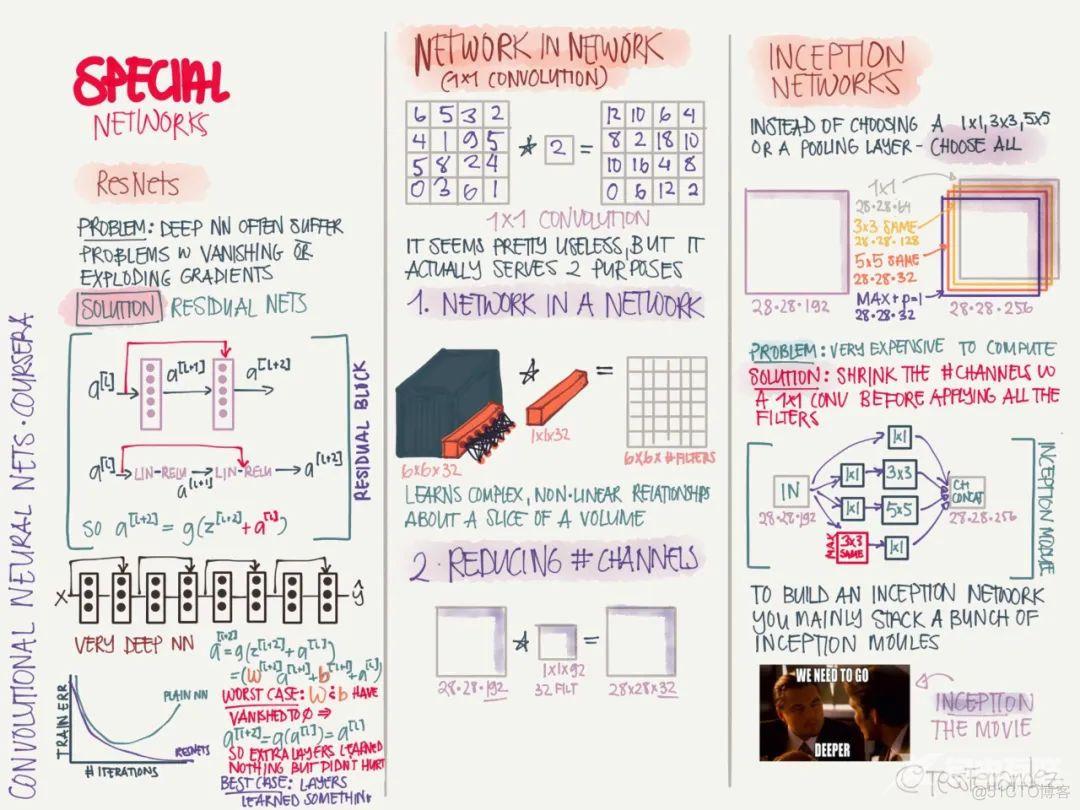 SPECIAL
NETWORKS
ResNets
PROBLEM: DEEP NN OFTEN SUFFER
PROBLEMS W VANISHING OR
EXPLODING GRADIENTS
SOLUTION RESIDUAL NETS
a[l] a[l+1] a[l+2]
a[l] → LIN-RELU → LIN-RELU → a[l+2]
a[l+1]
SO a[l+2] = g(z[l+2] + a[l])
RESIDUAL BLOCK
X ŷ
VERY DEEP NN
a[l+2] = g(z[l+2] + a[l])
= (W[l+2] a[l+1] + b[l+1] + a[l])
WORST CASE: W & b HAVE
VANISHED TO Ø ⇒
a[l+2] = g(a[l]) = a[l]
SO EXTRA LAYERS LEARNED
NOTHING BUT DIDN'T HURT
BEST CASE: LAYERS
LEARNED SOMETHING
TRAIN ERR
PLAIN NN
RESNETS
# ITERATIONS
CONVOLUTIONAL NEURAL NETS · COURSERA
NETWORK IN NETWORK
(1×1 CONVOLUTION)
6 5 3 2
4 1 9 5
5 8 2 4
0 3 6 1
* 2 =
12 10 6 4
8 2 18 10
10 16 4 8
0 6 12 2
1×1 CONVOLUTION
IT SEEMS PRETTY USELESS, BUT IT
ACTUALLY SERVES 2 PURPOSES
1. NETWORK IN A NETWORK
* =
6×6×32
1×1×32
6×6×#FILTERS
LEARNS COMPLEX, NON-LINEAR RELATIONSHIPS
ABOUT A SLICE OF A VOLUME
2. REDUCING # CHANNELS
* =
28·28·192
1×1×192
32 FILT
28×28×32
INCEPTION
NETWORKS
INSTEAD OF CHOOSING A 1×1, 3×3, 5×5
OR A POOLING LAYER - CHOOSE ALL
1×1
28·28·64
3×3 SAME
28·28·128
5×5 SAME
28·28·32
MAX + p=1
28·28·32
28·28·192
28·28·256
PROBLEM: VERY EXPENSIVE TO COMPUTE
SOLUTION: SHRINK THE #CHANNELS W
A 1×1 CONV BEFORE APPLYING ALL THE
FILTERS
IN
28·28·192
1×1
1×1 3×3
1×1 5×5
MAX 3×3 SAME 1×1
CH CONCAT
28·28·256
INCEPTION MODULE
TO BUILD AN INCEPTION NETWORK
YOU MAINLY STACK A BUNCH OF
INCEPTION MOULES
WE NEED TO GO
DEEPER
INCEPTION
THE MOVIE
©TessFerrandez
@51CTO博客